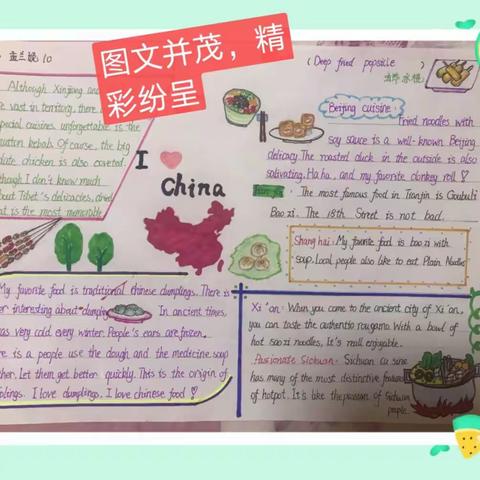 孟兰婉 10
图文并茂，精
彩纷呈
Although Xinjiang and
are vast in territory, there
special cuisines unforgettable is the
mutton kebab. Of course, the big
plate chicken is also coveted.
though I don't know much
about Tibet's delicacies, dried
eat is the most memorable
I
China
(Deep fried popsicle
油炸冰棍)
Beijing cuisine:
Fried noodles with
soy sauce is a well-known Beijing
delicacy. The roasted duck in the outside is also
salivating. Ha ha, and my favorite donkey roll
The most famous food in Tianjin is Goubuli
Bao zi. The 18th Street is not bad.
Shanghai: My favorite food is bao zi with
soup. Local people also like to eat Plain Noodles
My favorite food is traditional chinese dumplings. There is
er interesting about dumpling
In ancient times,
was very cold every winter. People's ears are frozen.
ere is a people use the dough and the medicine soup
ther. Let them get better quickly. This is the origin of
plings. I love dumplings. I love chinese food
Xi'an: When you come to the ancient city of Xi'an,
you can taste the authentic roujiamo. With a bowl of
hot saozi noodles, It's really enjoyable.
Passionate Sichuan: Sichuan cuisine
has many of the most distinctive features
of hotpot. It's like the passion of Sichuan
people.